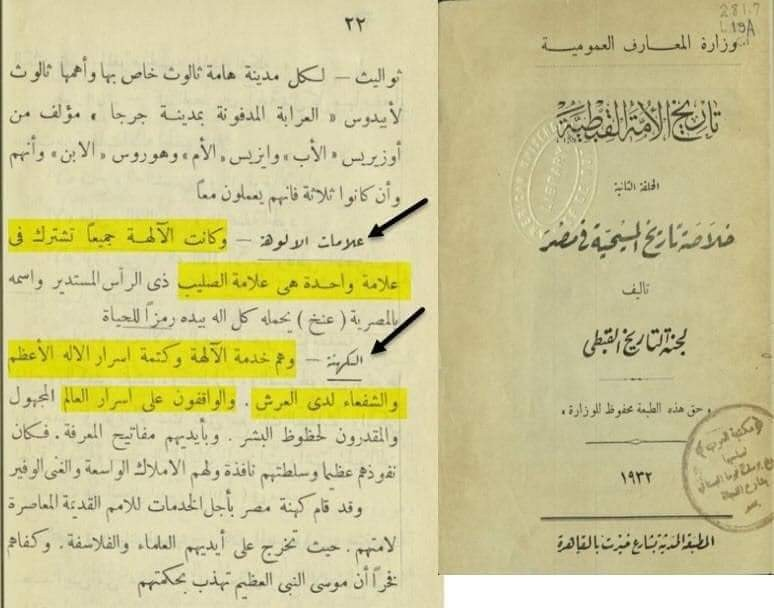 ٢٢
ثواليث — لكل مدينة هامة ثالوث خاص بها وأهمها ثالوث
لأبيدوس « العرابة المدفونة بمدينة جرجا » مؤلف من
أوزيريس «الأب» وايزيس «الأم» وهوروس «الابن» وأنهم
وأن كانوا ثلاثة فانهم يعملون معاً
علامات الالوهة — وكانت الآلهة جميعاً تشترك فى
علامة واحدة هى علامة الصليب ذى الرأس المستدير واسمه
بالمصرية ( عنخ ) يحمله كل اله بيده رمزاً للحياة
الكهنة — وهم خدمة الآلهة وكتمة اسرار الاله الأعظم
والشفعاء لدى العرش . والواقفون على اسرار العالم المجهول
والمقدرون لحظوظ البشر . وبأيديهم مفاتيح المعرفة . فكان
نفوذهم عظيما وسلطتهم نافذة ولهم الاملاك الواسعة والغنى الوفير
وقد قام كهنة مصر بأجل الخدمات للامم القديمة المعاصرة
لامتهم . حيث تخرج على أيديهم العلماء والفلاسفة . وكفاهم
فخراً أن موسى النبى العظيم تهذب بحكمتهم
281.7
L19A
وزارة المعارف العمومية
تاريخ الأمة القبطية
الحلقة الثانية
خلاصة تاريخ المسيحية فى مصر
تأليف
لجنة التاريخ القبطى
« حق هذه الطبعة محفوظ للوزارة »
١٩٣٢
المطبعة الحديثة بشارع خيرت بالقاهرة